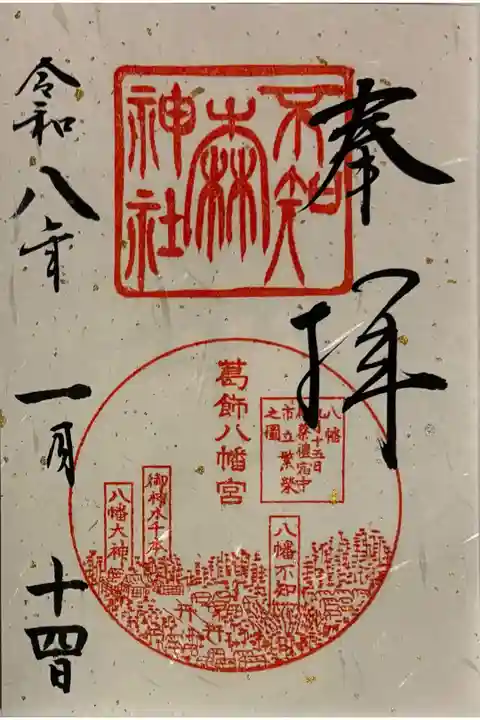 奉拝
不知
森
神社
葛飾八幡宮
八幡
月十五日
祭禮宿中
市立繁榮
之圖
八幡不知
御神木千本
八幡大神
令和八年
一月
十四日